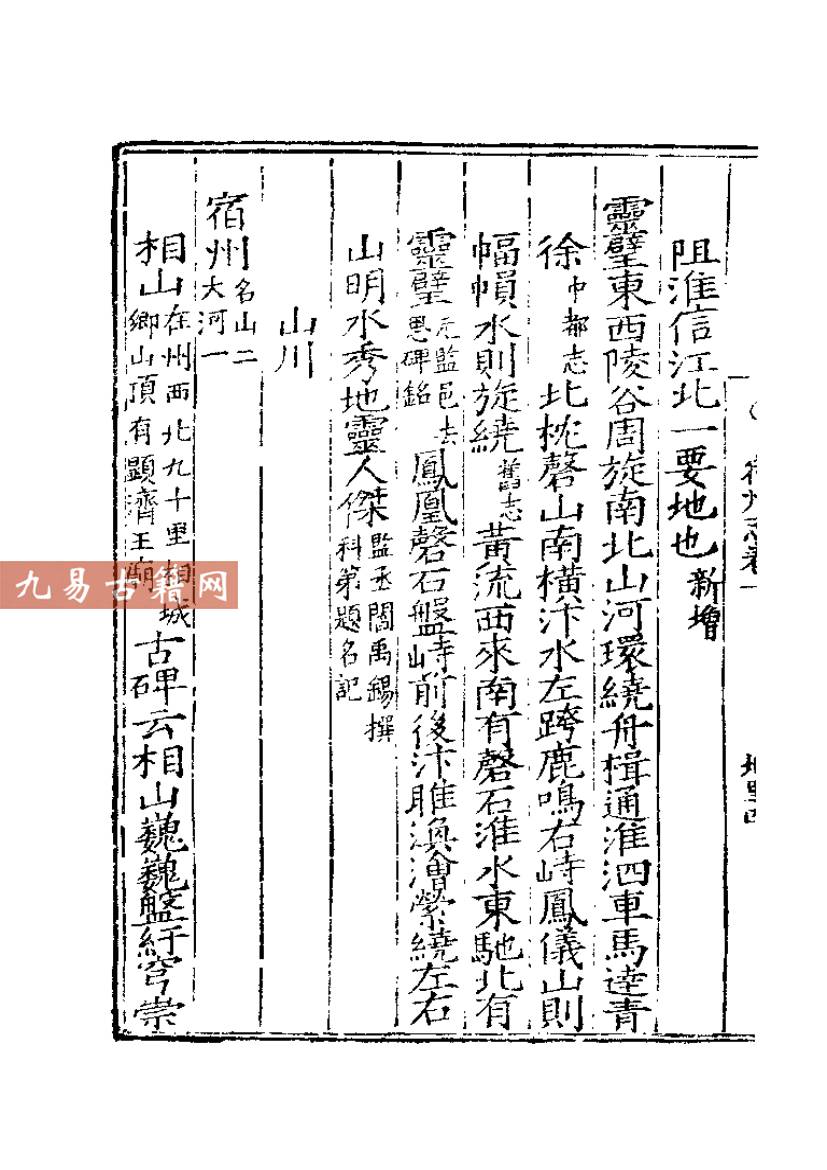 宿州志卷一
阻淮信江北一要地也新增
靈璧東西陵谷周旋南北山河環繞舟楫通淮泗車馬達青
徐中都志北枕磬山南橫汴水左跨鹿鳴右峙鳳儀山則
幅幀水則旋繞舊志黃流西來南有磬石淮水東馳北有
靈璧元監邑去思碑銘鳳凰磬石盤峙前後汴睢渙澮縈繞左右
山明水秀地靈人傑監丞閻禹錫撰科第題名記
山川
宿州名山二大河一
相山在州西北九十里相城鄉山頂有顯濟王廟古碑云相山巍巍盤紆穹崇
九易古籍网